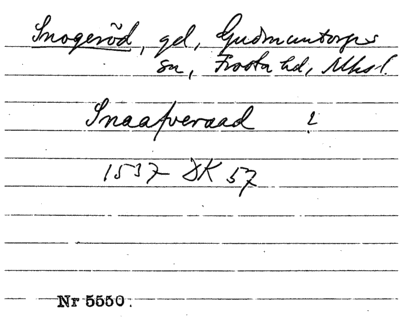 Snogeröd, gd, Gudmuntorps
sn, Frosta hd, Mhsl.
Snaafveraad ?
1537 DK 57
Nr 5550.